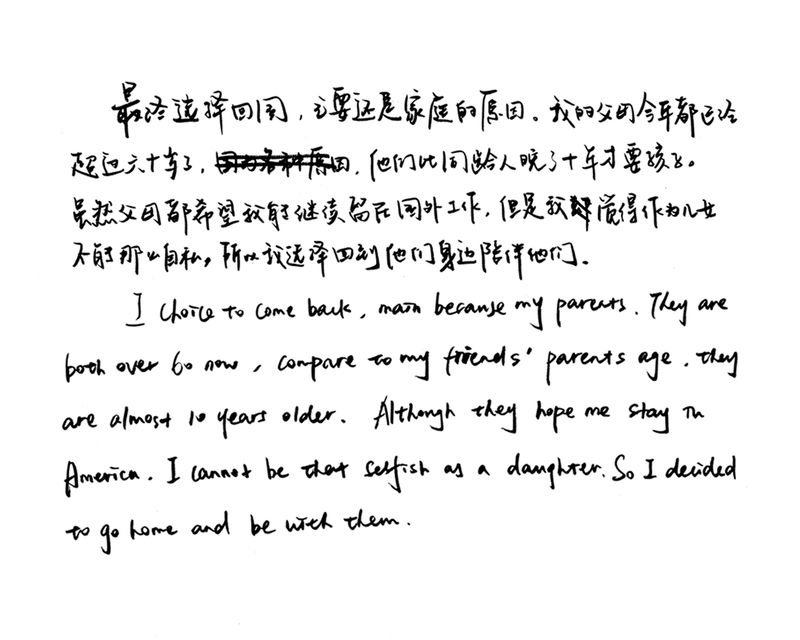 最终选择回国，主要还是家庭的原因。我的父母今年都已经
超过六十岁了，他们比同龄人晚了十年才要孩子。
虽然父母都希望我能继续留在国外工作，但是我觉得作为儿女
不能那么自私，所以我选择回到他们身边陪伴他们。
I choice to come back, main because my parents. They are
both over 60 now, compare to my friends' parents age. they
are almost 10 years older. Although they hope me stay in
America. I cannot be that selfish as a daughter. So I decided
to go home and be with them.